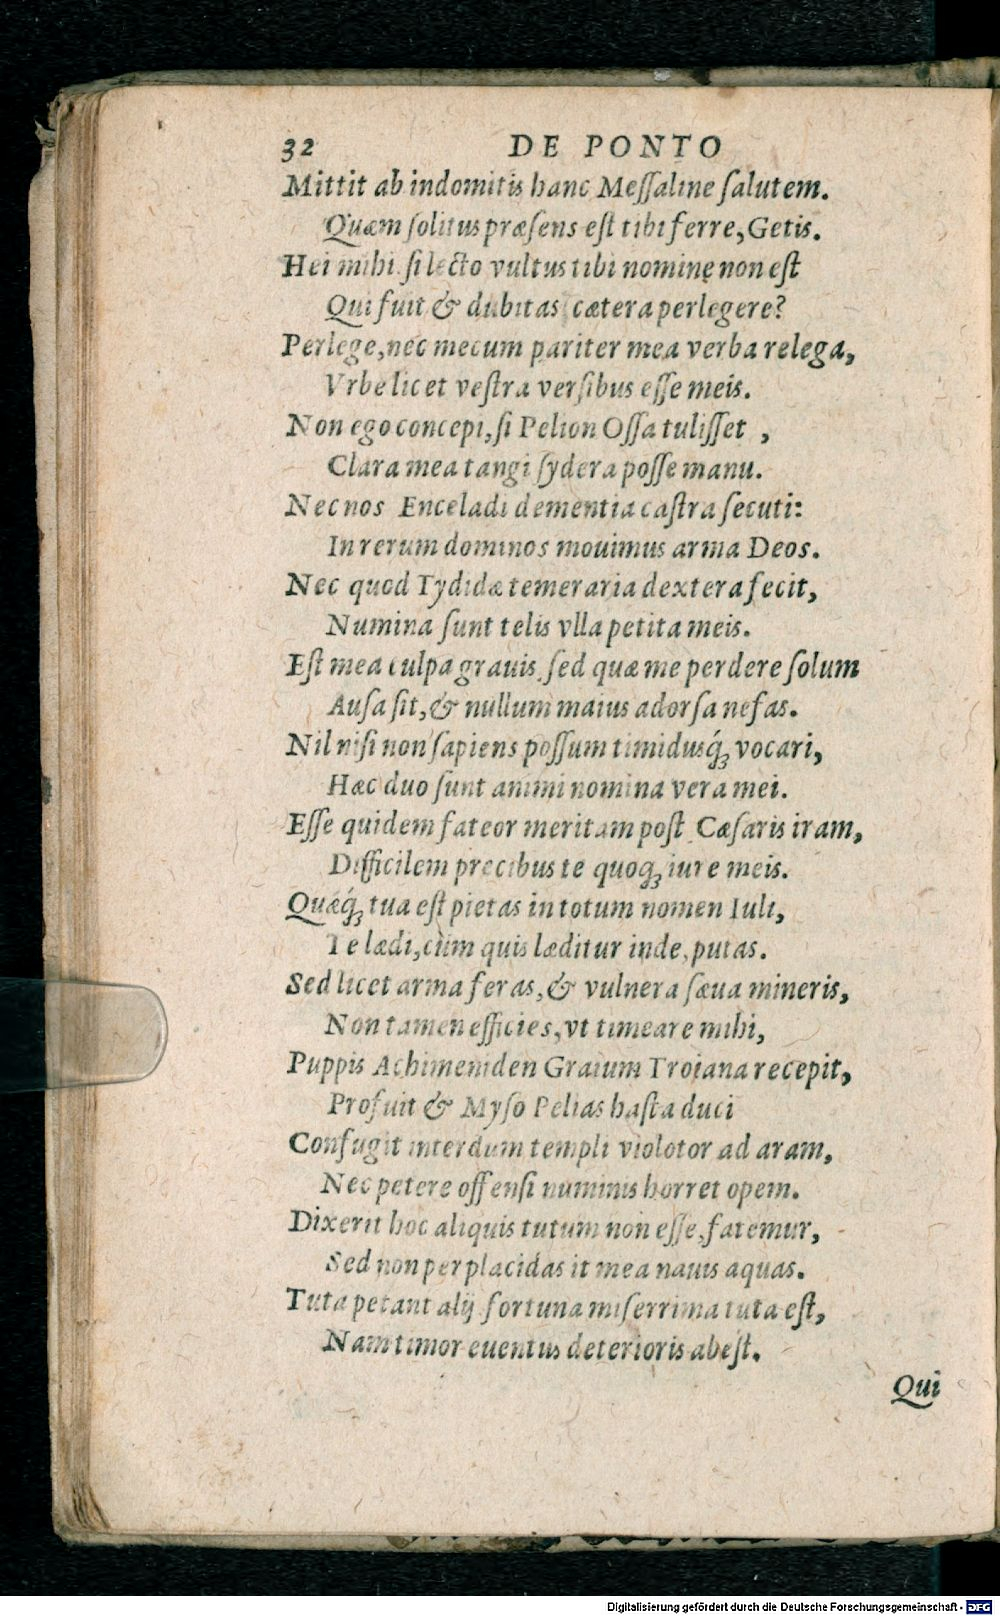 32 DE PONTO
Mittit ab indomitis hanc Meſſaline ſalutem.
Quæm ſolitus præſens eſt tibi ferre, Getis.
Hei mihi ſi lecto vultus tibi nominę non eſt
Qui fuit & dubitas cætera perlegere?
Perlege, nec mecum pariter mea verba relega,
Vrbe licet veſtra verſibus eſſe meis.
Non ego concepi, ſi Pelion Oſſa tuliſſet ,
Clara mea tangi ſydera poſſe manu.
Nec nos Enceladi dementia caſtra ſecuti:
In rerum dominos mouimus arma Deos.
Nec quod Tydidæ temeraria dextera fecit,
Numina ſunt telis vlla petita meis.
Eſt mea culpa grauis, ſed quæ me perdere ſolum
Auſa ſit, & nullum maius adorſa nefas.
Nil niſi non ſapiens poſſum timidusq́ꝫ vocari,
Hæc duo ſunt animi nomina vera mei.
Eſſe quidem fateor meritam poſt Cæſaris iram,
Difficilem precibus te quoqꝫ iure meis.
Quæq́ꝫ tua eſt pietas in totum nomen Iuli,
Te lædi, cùm quis læditur inde, putas.
Sed licet arma feras, & vulnera ſæua mineris,
Non tamen efficies, vt timeare mihi,
Puppis Achimeniden Graium Troiana recepit,
Profuit & Myſo Pelias haſta duci
Confugit interdum templi violotor ad aram,
Nec petere offenſi numinis horret opem.
Dixerit hoc aliquis tutum non eſſe, fatemur,
Sed non per placidas it mea nauis aquas.
Tuta petant alij fortuna miſerrima tuta eſt,
Nam timor euentus deterioris abeſt.
Qui
Digitalisierung gefördert durch die Deutsche Forschungsgemeinschaft - DFG